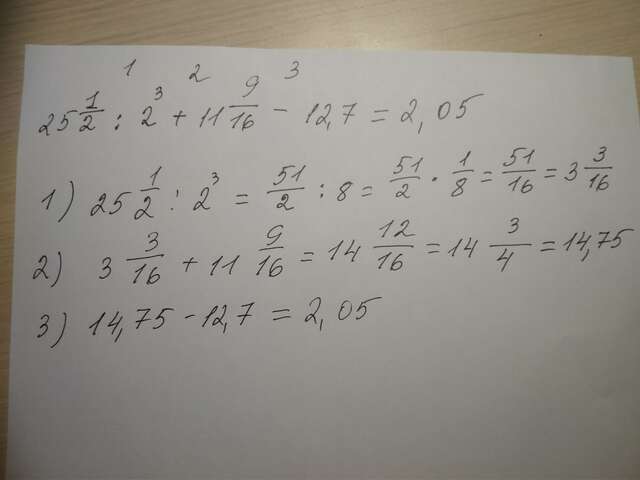 1 2 3
25 1/2 : 2³ + 11 9/16 - 12,7 = 2,05
1) 25 1/2 : 2³ = 51/2 : 8 = 51/2 · 1/8 = 51/16 = 3 3/16
2) 3 3/16 + 11 9/16 = 14 12/16 = 14 3/4 = 14,75
3) 14,75 - 12,7 = 2,05